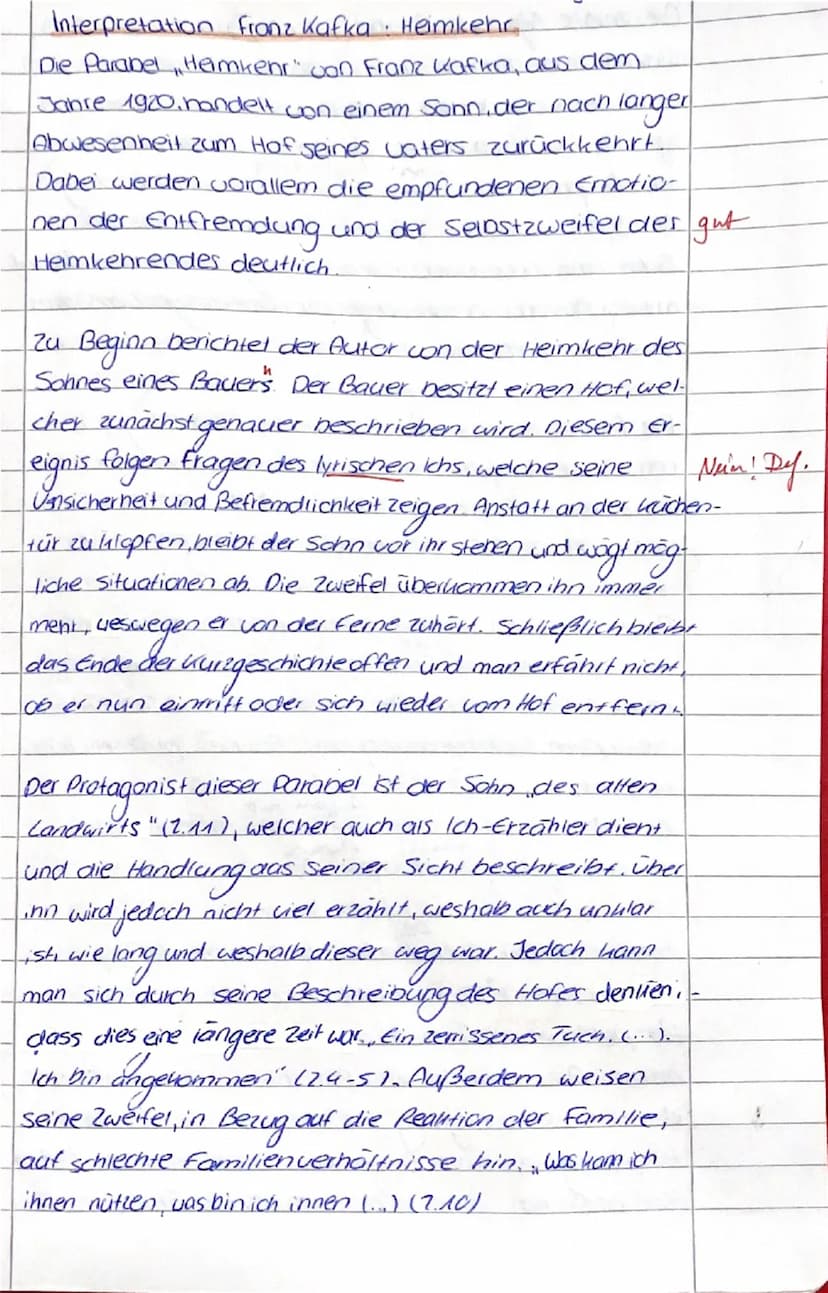 Interpretation Franz Kafka: Heimkehr
Die Parabel „Heimkehr" von Franz Kafka, aus dem
Jahre 1920, handelt von einem Sohn, der nach langer
Abwesenheit zum Hof seines Vaters zurückkehrt.
Dabei werden vorallem die empfundenen Emotio-
nen der Entfremdung und der Selbstzweifel des gut
Heimkehrendes deutlich.
Zu Beginn berichtet der Autor von der Heimkehr des
Sohnes eines Bauers n. Der Bauer besitzt einen Hof, wel-
cher zunächst genauer beschrieben wird. Diesem Er-
eignis folgen Fragen des lyrischen Ichs, welche seine Nein! Def.
Unsicherheit und Befremdlichkeit zeigen. Anstatt an der Küchen-
tür zu klopfen, bleibt der Sohn vor ihr stehen und wägt mög-
liche Situationen ab. Die Zweifel überkommen ihn immer
mehr, weswegen er von der Ferne zuhört. Schließlich bleibt
das Ende der Kurzgeschichte offen und man erfährt nicht,
ob er nun eintritt oder sich wieder vom Hof entfernt.
Der Protagonist dieser Parabel ist der Sohn „des alten
Landwirts" (Z.11), welcher auch als Ich-Erzähler dient
und die Handlung aus seiner Sicht beschreibt. Über
ihn wird jedoch nicht viel erzählt, weshalb auch unklar
ist, wie lang und weshalb dieser weg war. Jedoch kann
man sich durch seine Beschreibung des Hofes denken, -
dass dies eine längere Zeit war. „Ein zerrissenes Tuch, (...).
Ich bin angekommen" (Z.4-5). Außerdem weisen
seine Zweifel, in Bezug auf die Reaktion der Familie,
auf schlechte Familienverhältnisse hin. „Was kann ich
ihnen nützen, was bin ich ihnen (...) (Z.10)